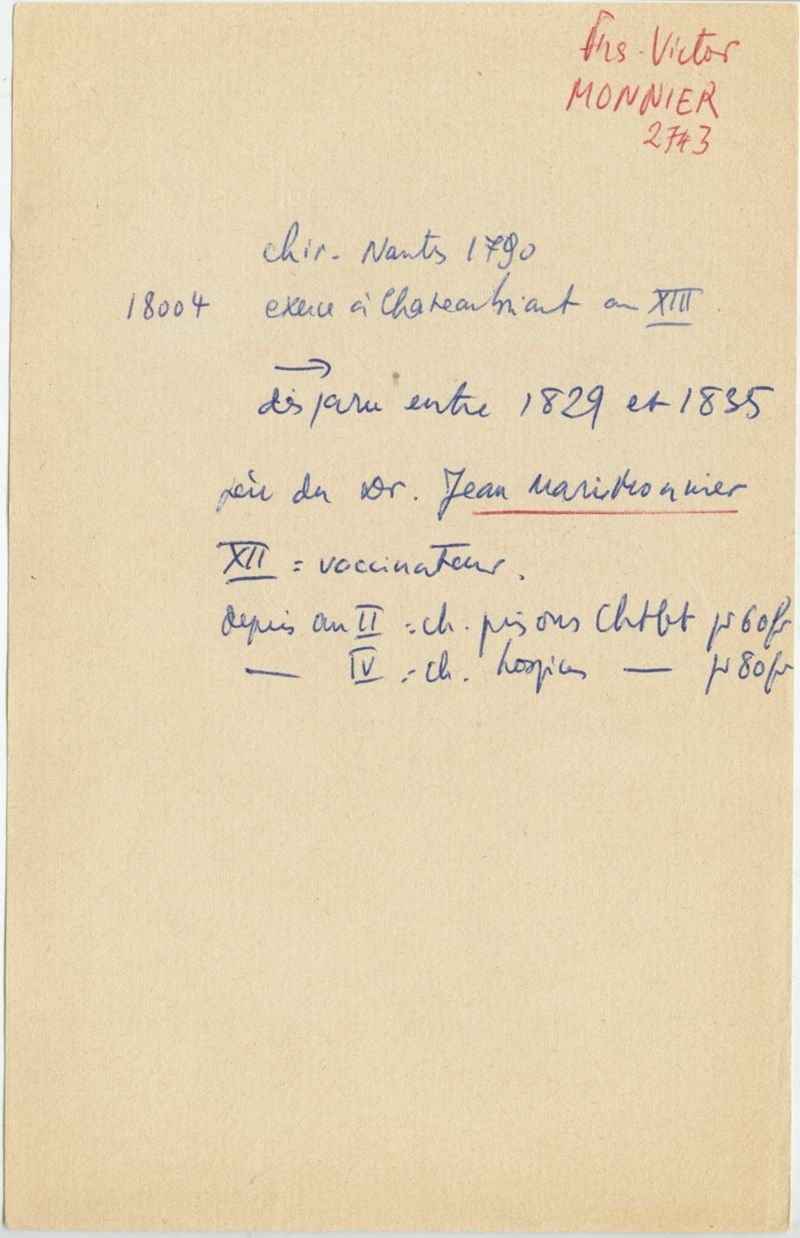 Frs-Victor
MONNIER
2743
chir. Nantes 1790
18004 exerce à Chateaubriant an XIII
→
disparu entre 1829 et 1835
père du Dr. Jean Marie Monnier
XII = vaccinateur.
depuis an II = ch. prisons Chtbt pr 60 fr
— IV = ch. hospices — pr 80 fr